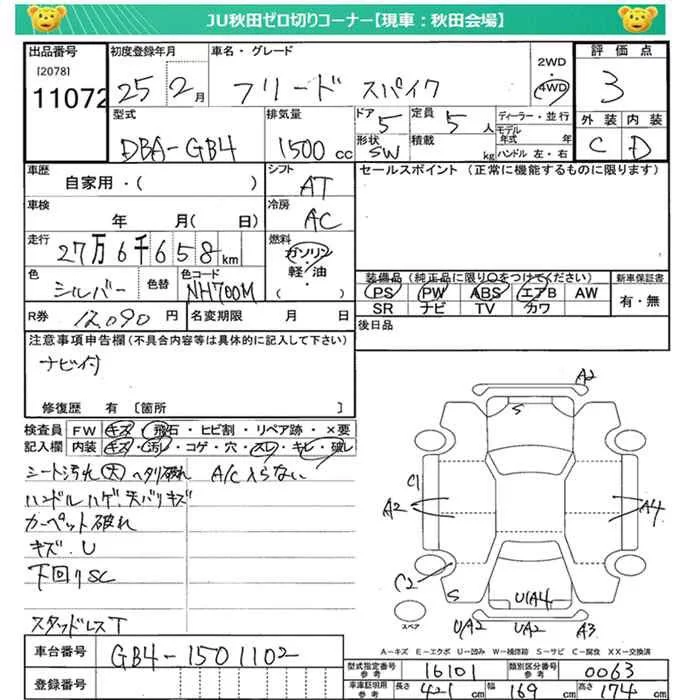 JU秋田ゼロ切りコーナー【現車：秋田会場】
出品番号 初度登録年月 車名・グレード 評価点
[2078] 11072
25年 2月 フリード スパイク 2WD 4WD 3
型式 排気量 ドア 定員 ディーラー・並行 外装 内装
DBA-GB4 1500cc 5 5人 モデル年式 年 C D
形状 SW 積載 kg ハンドル 左・右
車歴 シフト セールスポイント (正常に機能するものに限ります)
自家用・( ) AT
車検 冷房
年 月(日) AC
走行 燃料
27万6千658km ガソリン
軽・油
( )
色 色替 色コード 装備品 (純正品に限り○をつけてください) 新車保証書
シルバー NH700M PS PW ABS エアB AW 有・無
SR ナビ TV カワ
R券 12,090円 名変期限 月 日 後日品
注意事項申告欄 (不具合内容等は具体的に記入して下さい)
ナビ付
修復歴 有 [箇所 ]
検査員 FW キズ・飛石・ヒビ割・リペア跡・×要
記入欄 内装 キズ・汚レ・コゲ・穴・スレ・キレ・破レ
シート汚れ(大) ヘタリ破れ A/C入らない
ハンドルハゲ、天バリキズ
カーペット破れ
キズ.U
下回りSC
スタッドレスT
A2
S
C1
A2 A4
C2
S U1A4
スペア U1A2 UA2 A3
A-キズ E-エクボ U-凹み W-補修跡 S-サビ C-腐食 XX-交換済
車台番号 GB4-1501102
型式指定番号 参考 16101 類別区分番号 参考 0063
登録番号 車庫証明用 参考 長さ 421cm 幅 169cm 高さ 174cm